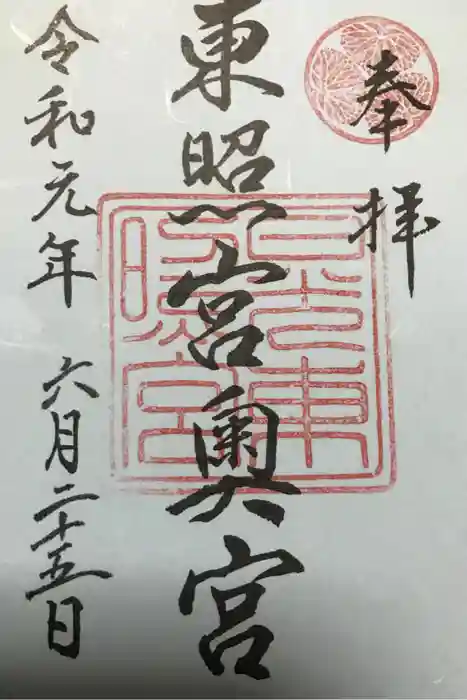 奉拝
東照宮奥宮
日光東照宮
令和元年六月二十五日